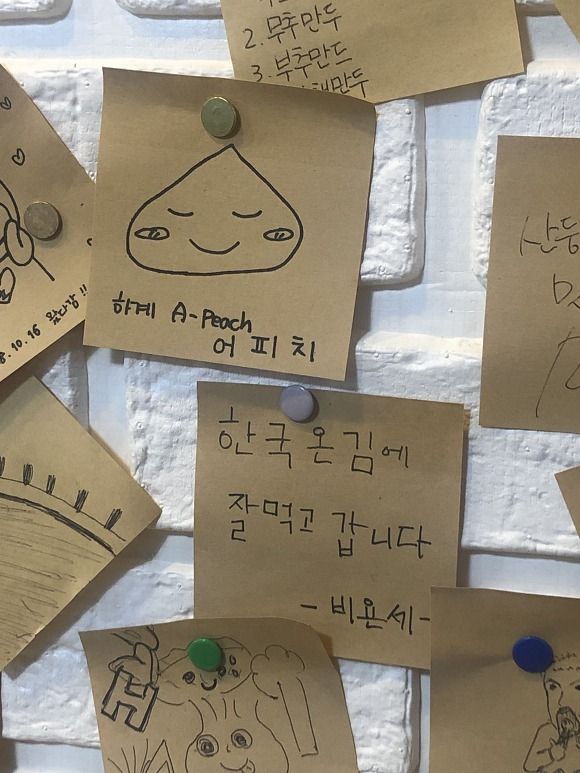 2. 무추만두
3. 부추만드
만두
8.10.16 왔다감 !!
하계 A-Peach
어 피 치
산둥
한국온김에
잘먹고 갑니다
- 비욘세 -
H